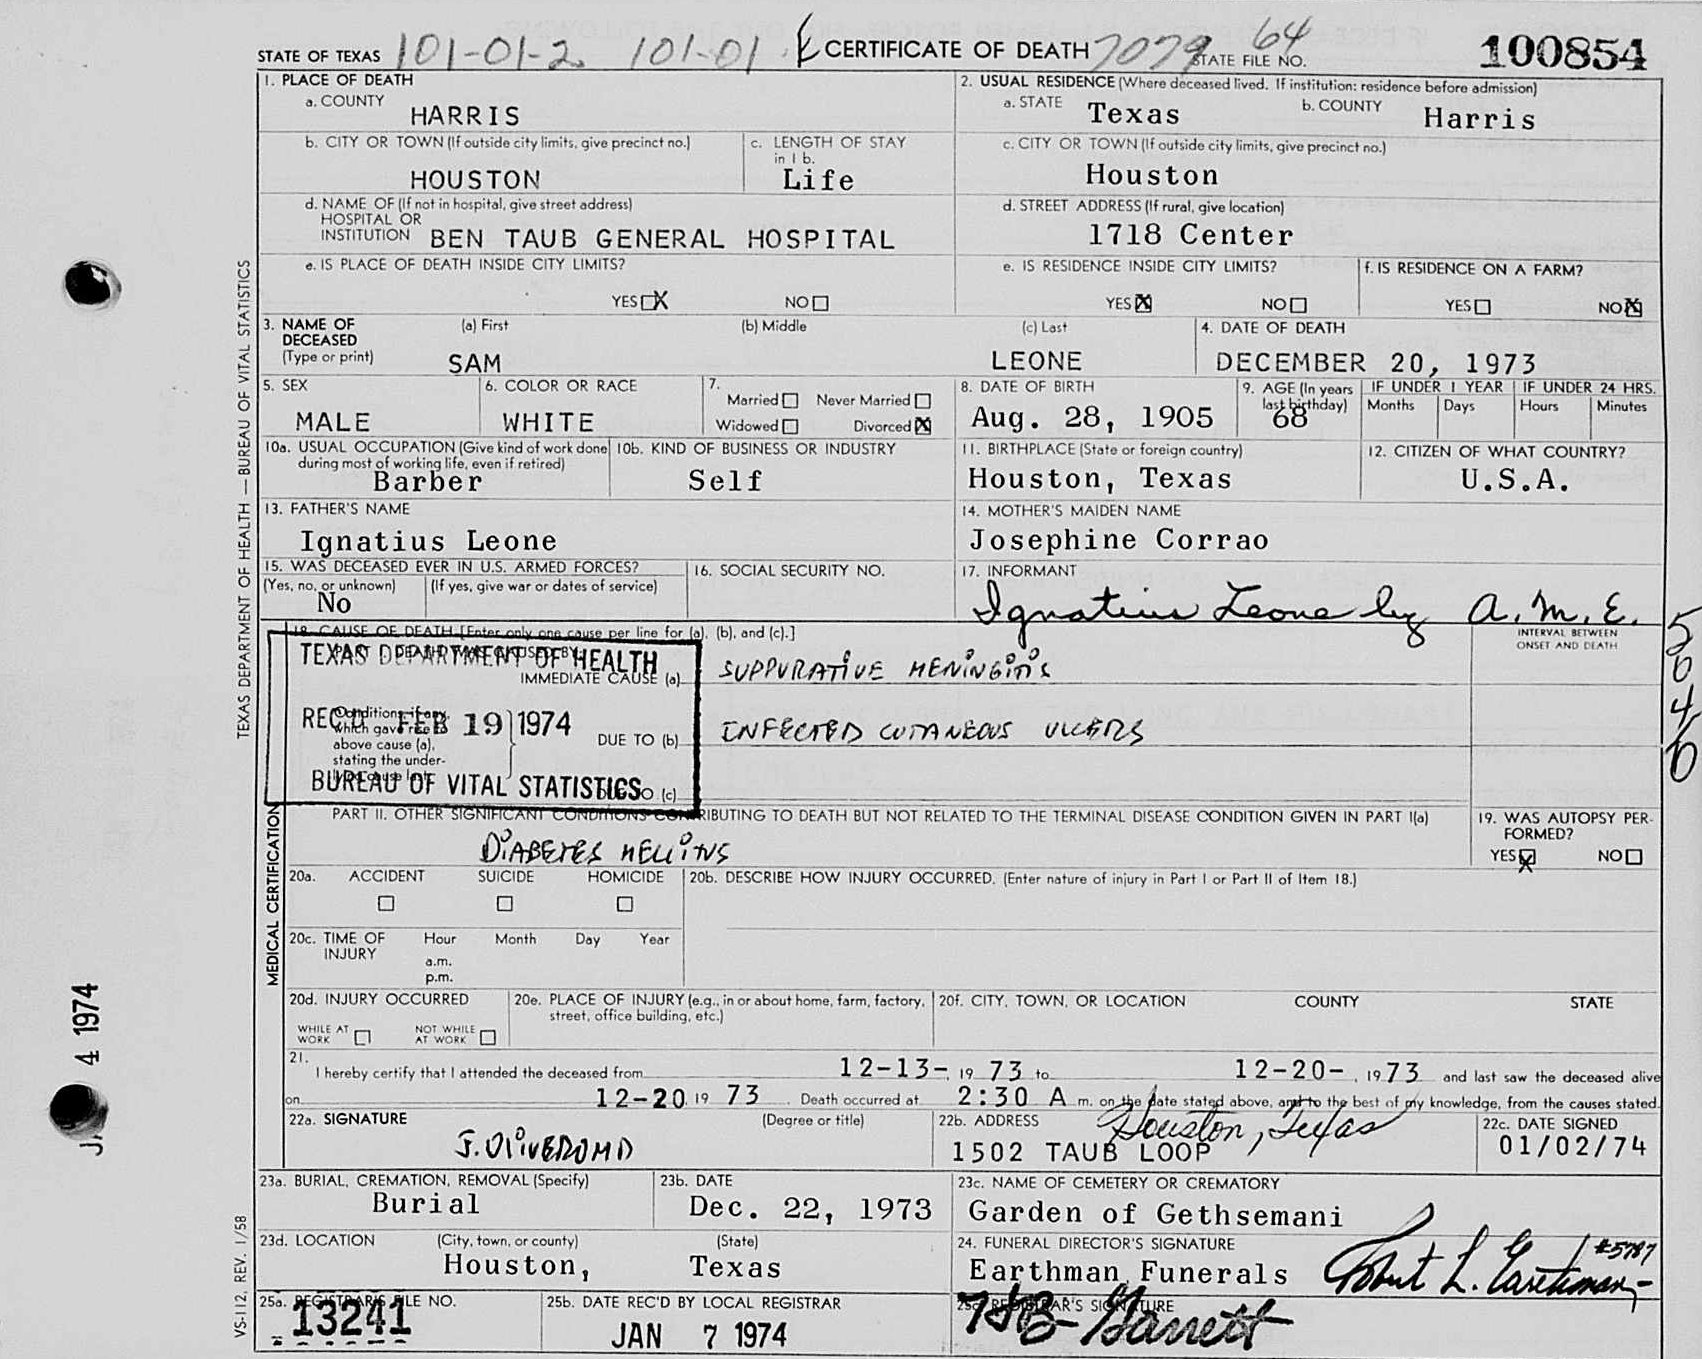 STATE OF TEXAS 101-01-2 101-01 CERTIFICATE OF DEATH 7079 64 STATE FILE NO. 100854
1. PLACE OF DEATH
a. COUNTY
HARRIS
2. USUAL RESIDENCE (Where deceased lived. If institution: residence before admission)
a. STATE Texas b. COUNTY Harris
b. CITY OR TOWN (If outside city limits, give precinct no.)
HOUSTON
c. LENGTH OF STAY in 1 b.
Life
c. CITY OR TOWN (If outside city limits, give precinct no.)
Houston
d. NAME OF (If not in hospital, give street address)
HOSPITAL OR
INSTITUTION BEN TAUB GENERAL HOSPITAL
d. STREET ADDRESS (If rural, give location)
1718 Center
e. IS PLACE OF DEATH INSIDE CITY LIMITS?
YES X NO
e. IS RESIDENCE INSIDE CITY LIMITS?
YES X NO
f. IS RESIDENCE ON A FARM?
YES NO X
3. NAME OF DECEASED (Type or print)
(a) First (b) Middle (c) Last
SAM LEONE
4. DATE OF DEATH
DECEMBER 20, 1973
5. SEX
MALE
6. COLOR OR RACE
WHITE
7.
Married Never Married
Widowed Divorced X
8. DATE OF BIRTH
Aug. 28, 1905
9. AGE (In years last birthday)
68
IF UNDER 1 YEAR
Months Days
IF UNDER 24 HRS.
Hours Minutes
10a. USUAL OCCUPATION (Give kind of work done during most of working life, even if retired)
Barber
10b. KIND OF BUSINESS OR INDUSTRY
Self
11. BIRTHPLACE (State or foreign country)
Houston, Texas
12. CITIZEN OF WHAT COUNTRY?
U.S.A.
13. FATHER'S NAME
Ignatius Leone
14. MOTHER'S MAIDEN NAME
Josephine Corrao
15. WAS DECEASED EVER IN U.S. ARMED FORCES?
(Yes, no, or unknown) (If yes, give war or dates of service)
No
16. SOCIAL SECURITY NO.
17. INFORMANT
Ignatius Leone by A.M.E.
18. CAUSE OF DEATH [Enter only one cause per line for (a), (b), and (c).]
INTERVAL BETWEEN
ONSET AND DEATH
PART I. DEATH WAS CAUSED BY:
IMMEDIATE CAUSE (a) SUPPURATIVE MENINGITIS
Conditions, if any, which gave rise to above cause (a), stating the underlying cause last.
DUE TO (b) INFECTED CUTANEOUS ULCERS
DUE TO (c)
TEXAS DEPARTMENT OF HEALTH
REC'D FEB 19 1974
BUREAU OF VITAL STATISTICS
PART II. OTHER SIGNIFICANT CONDITIONS CONTRIBUTING TO DEATH BUT NOT RELATED TO THE TERMINAL DISEASE CONDITION GIVEN IN PART I(a)
DIABETES MELLITUS
19. WAS AUTOPSY PERFORMED?
YES X NO
20a. ACCIDENT SUICIDE HOMICIDE
20b. DESCRIBE HOW INJURY OCCURRED. (Enter nature of injury in Part I or Part II of Item 18.)
20c. TIME OF INJURY
Hour Month Day Year
a.m.
p.m.
20d. INJURY OCCURRED
WHILE AT WORK NOT WHILE AT WORK
20e. PLACE OF INJURY (e.g., in or about home, farm, factory, street, office building, etc.)
20f. CITY, TOWN, OR LOCATION COUNTY STATE
21.
I hereby certify that I attended the deceased from 12-13-, 19 73 to 12-20-, 19 73 and last saw the deceased alive
on 12-20 19 73. Death occurred at 2:30 A m. on the date stated above, and to the best of my knowledge, from the causes stated.
22a. SIGNATURE (Degree or title)
J. OLIVERO MD
22b. ADDRESS
Houston, Texas
1502 TAUB LOOP
22c. DATE SIGNED
01/02/74
23a. BURIAL, CREMATION, REMOVAL (Specify)
Burial
23b. DATE
Dec. 22, 1973
23c. NAME OF CEMETERY OR CREMATORY
Garden of Gethsemani
23d. LOCATION (City, town, or county) (State)
Houston, Texas
24. FUNERAL DIRECTOR'S SIGNATURE
Earthman Funerals Robert L. Earthman #5787
25a. REGISTRAR'S FILE NO.
13241
25b. DATE REC'D BY LOCAL REGISTRAR
JAN 7 1974
25c. REGISTRAR'S SIGNATURE
Garrett
TEXAS DEPARTMENT OF HEALTH — BUREAU OF VITAL STATISTICS
MEDICAL CERTIFICATION
VS-112, REV. 1/58
4 1974